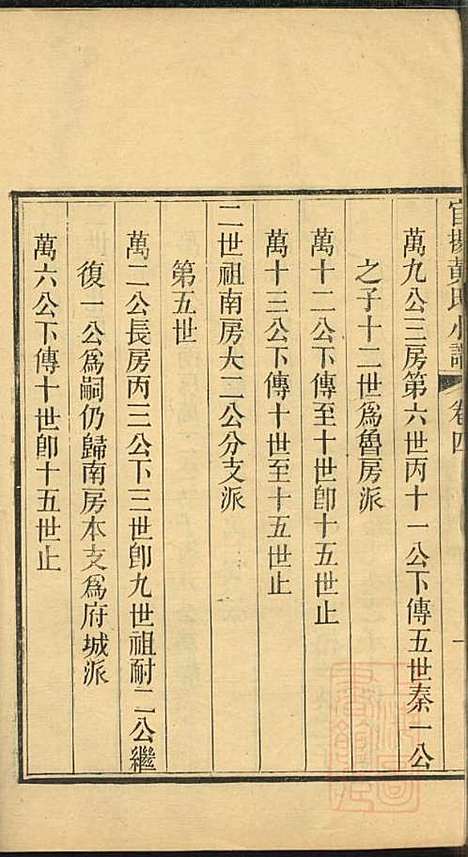 官橋黃氏小譜 卷四 一
萬九公三房第六世丙十一公下傳五世秦一公
之子十二世為魯房派
萬十二公下傳至十世卽十五世止
萬十三公下傳十世至十五世止
二世祖南房大二公分支派
第五世
萬二公長房丙三公下三世卽九世祖耐二公繼
復一公為嗣仍歸南房本支為府城派
萬六公下傳十世卽十五世止